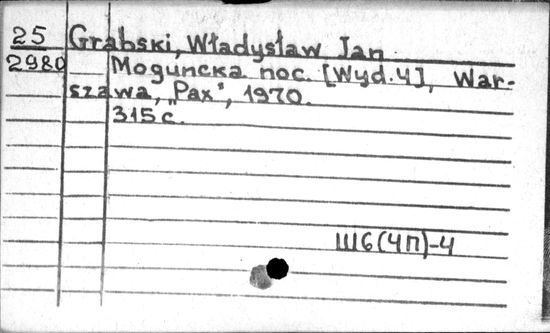 25 Grabski, Władysław Jan
2980 Moguncka noc. [Wyd. 4], War-
szawa, „Pax", 1970.
315 c.
Ш6(4П)-4